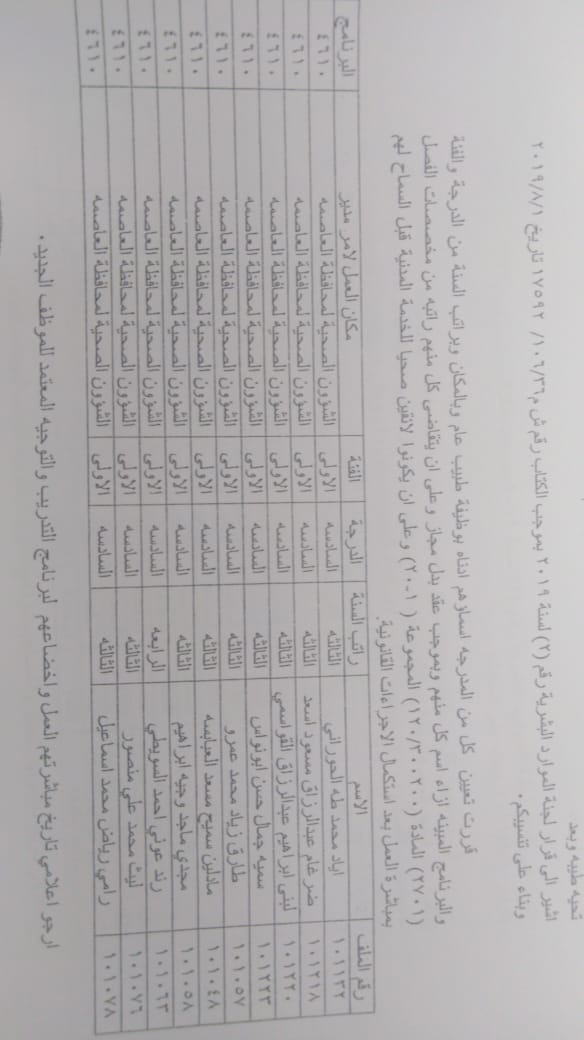 تحيه طيبه وبعد
اشير الى قرار لجنة الموارد البشرية رقم (٢) لسنة ٢٠١٩ بموجب الكتاب رقم ش م١٠٦/٣٦/ ١٧٥٩٢ تاريخ ٢٠١٩/٨/١
وبناء على تنسيبكم.
قررت تعيين كل من المدرجه اسماؤهم ادناه بوظيفة طبيب عام وبالمكان وبراتب السنة من الدرجة والفئة
والبرنامج المبينه ازاء اسم كل منهم وبموجب عقد بدل مجاز وعلى ان يتقاضى كل منهم راتبه من مخصصات الفصل
(٢٧٠١) المادة (١٢٠/٣٠٠٢٠٠) المجموعة (١-٢٠) وعلى ان يكونوا لائقين صحيا للخدمة المدنية قبل السماح لهم
بمباشرة العمل بعد استكمال الاجراءات القانونية.
رقم الملف الاسم راتب السنة الدرجة الفئة مكان العمل لامر مدير البرنامج
١٠١١٣٢ اياد محمد طه الحوراني الثالثه السادسه الاولى الشؤون الصحية لمحافظة العاصمه ٤٦١٠
١٠١٢١٨ ضرغام عبدالرزاق مسعود اسعد الثالثه السادسه الاولى الشؤون الصحية لمحافظة العاصمه ٤٦١٠
١٠١٢٢٠ لبنى ابراهيم عبدالرزاق القواسمي الثالثه السادسه الاولى الشؤون الصحية لمحافظة العاصمه ٤٦١٠
١٠١٢٢٣ سميه جمال حسن ابونواس الثالثه السادسه الاولى الشؤون الصحية لمحافظة العاصمه ٤٦١٠
١٠١٠٥٧ طارق زياد محمد عمرو الثالثه السادسه الاولى الشؤون الصحية لمحافظة العاصمه ٤٦١٠
١٠١٠٤٨ مادلين سميح مسعد العبابسه الثالثه السادسه الاولى الشؤون الصحية لمحافظة العاصمه ٤٦١٠
١٠١٠٥٨ مجدي ماجد وجيه ابراهيم الثالثه السادسه الاولى الشؤون الصحية لمحافظة العاصمه ٤٦١٠
١٠١٠٦٣ رند عوني احمد السويطي الرابعه السادسه الاولى الشؤون الصحية لمحافظة العاصمه ٤٦١٠
١٠١٠٧٦ ليث محمد علي منصور الثالثه السادسه الاولى الشؤون الصحية لمحافظة العاصمه ٤٦١٠
١٠١٠٧٨ رامي رياض محمد اسماعيل الثالثه السادسه الاولى الشؤون الصحية لمحافظة العاصمه ٤٦١٠
ارجو اعلامي تاريخ مباشرتهم العمل واخضاعهم لبرنامج التدريب والتوجيه المعتمد للموظف الجديد.